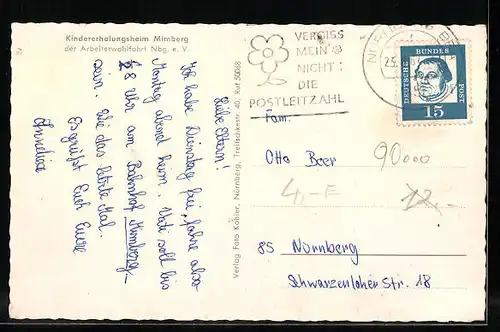 Kindererholungsheim Mimberg
der Arbeiterwohlfahrt Nbg. e. V.
Liebe Eltern!
Ich habe Dienstag frei, fahre also
Montag abend heim. Vati soll bis
8 Uhr am Bahnhof Mimberg
sein. Wie das letzte Mal.
Es grüßt Euch Eure
Annelies
Verlag Foto Kohler, Nürnberg, Treitschkestr. 40, Ruf 50068
VERGISS
MEIN
NICHT:
DIE
POSTLEITZAHL
DEUTSCHE
BUNDES
POST
15
Fam.
Otto Beer
90000
4,-E
12,-
85 Nürnberg
Schwarzenloher Str. 18